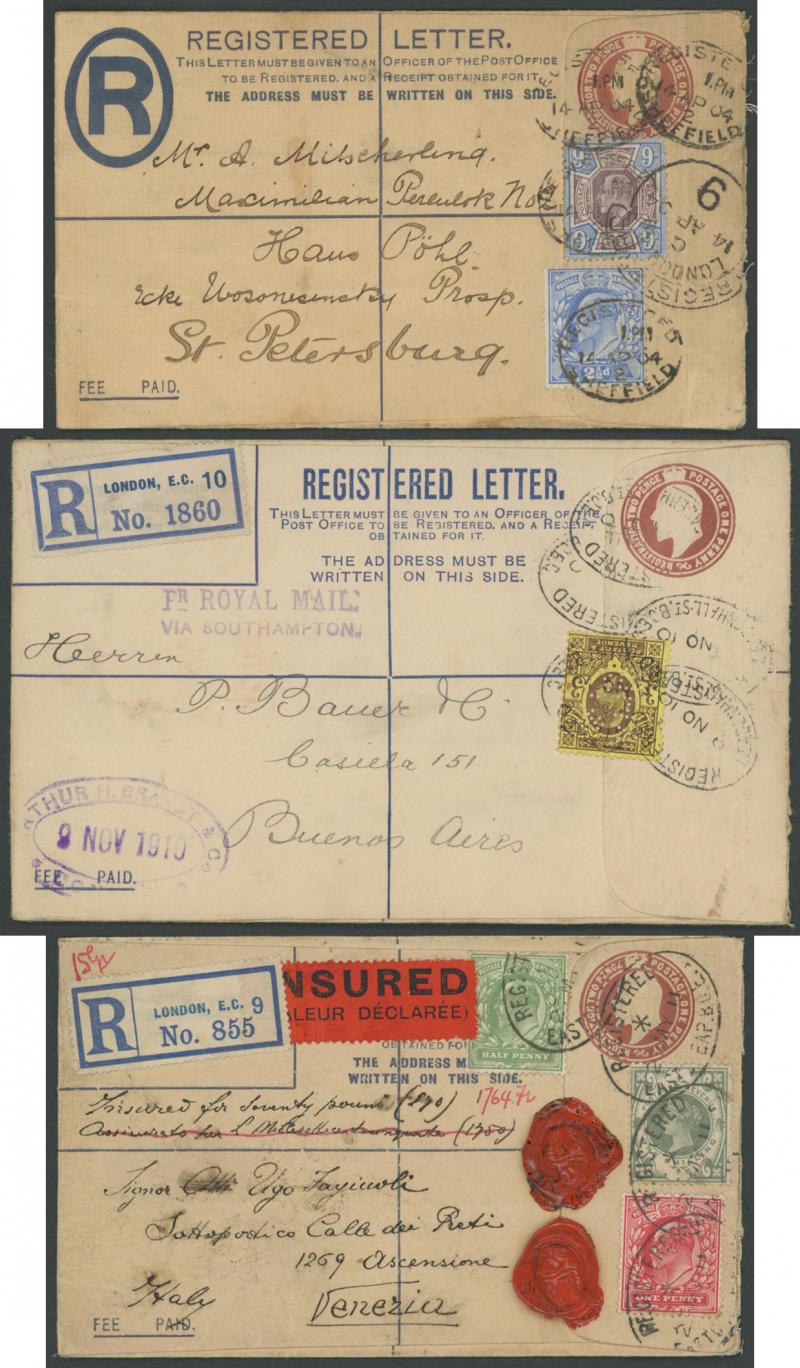 REGISTERED LETTER.
THIS LETTER MUST BE GIVEN TO AN OFFICER OF THE POST OFFICE
TO BE REGISTERED, AND A RECEIPT OBTAINED FOR IT.
THE ADDRESS MUST BE WRITTEN ON THIS SIDE.
R
1.PM
14 AP 04
SHEFFIELD
Mr A. Mitscherling.
Maximilian Pereulok No
Haus Pöhl
Ecke Wosonesensky Prosp.
St. Petersburg.
9
9
2½d
REGISTERED
1.PM
14 AP 04
2
SHEFFIELD
FEE PAID.
R
LONDON, E.C. 10
No. 1860
REGISTERED LETTER.
THIS LETTER MUST BE GIVEN TO AN OFFICER OF THE
POST OFFICE TO BE REGISTERED, AND A RECEIPT
OBTAINED FOR IT.
THE ADDRESS MUST BE
WRITTEN ON THIS SIDE.
REGISTRATION TWO PENCE POSTAGE ONE PENNY
PR ROYAL MAIL
VIA SOUTHAMPTON.
Herren
P. Bauer & C.
Casiela 151
Buenos Aires
ARTHUR H. BRANDT & Co
9 NOV 1910
FEE PAID.
REGISTERED
NO 10
R
LONDON, E.C. 9
No. 855
INSURED
(VALEUR DÉCLARÉE)
HALF PENNY
OBTAINED FOR
THE ADDRESS M
WRITTEN ON THIS SIDE.
Insured for seventy pound (£70)
1764 fr
(1750)
Signor Ugo
Sottoportico Calle dei Preti
1269 Ascensione
Italy Venezia
ONE PENNY
REGISTERED
FEE PAID.